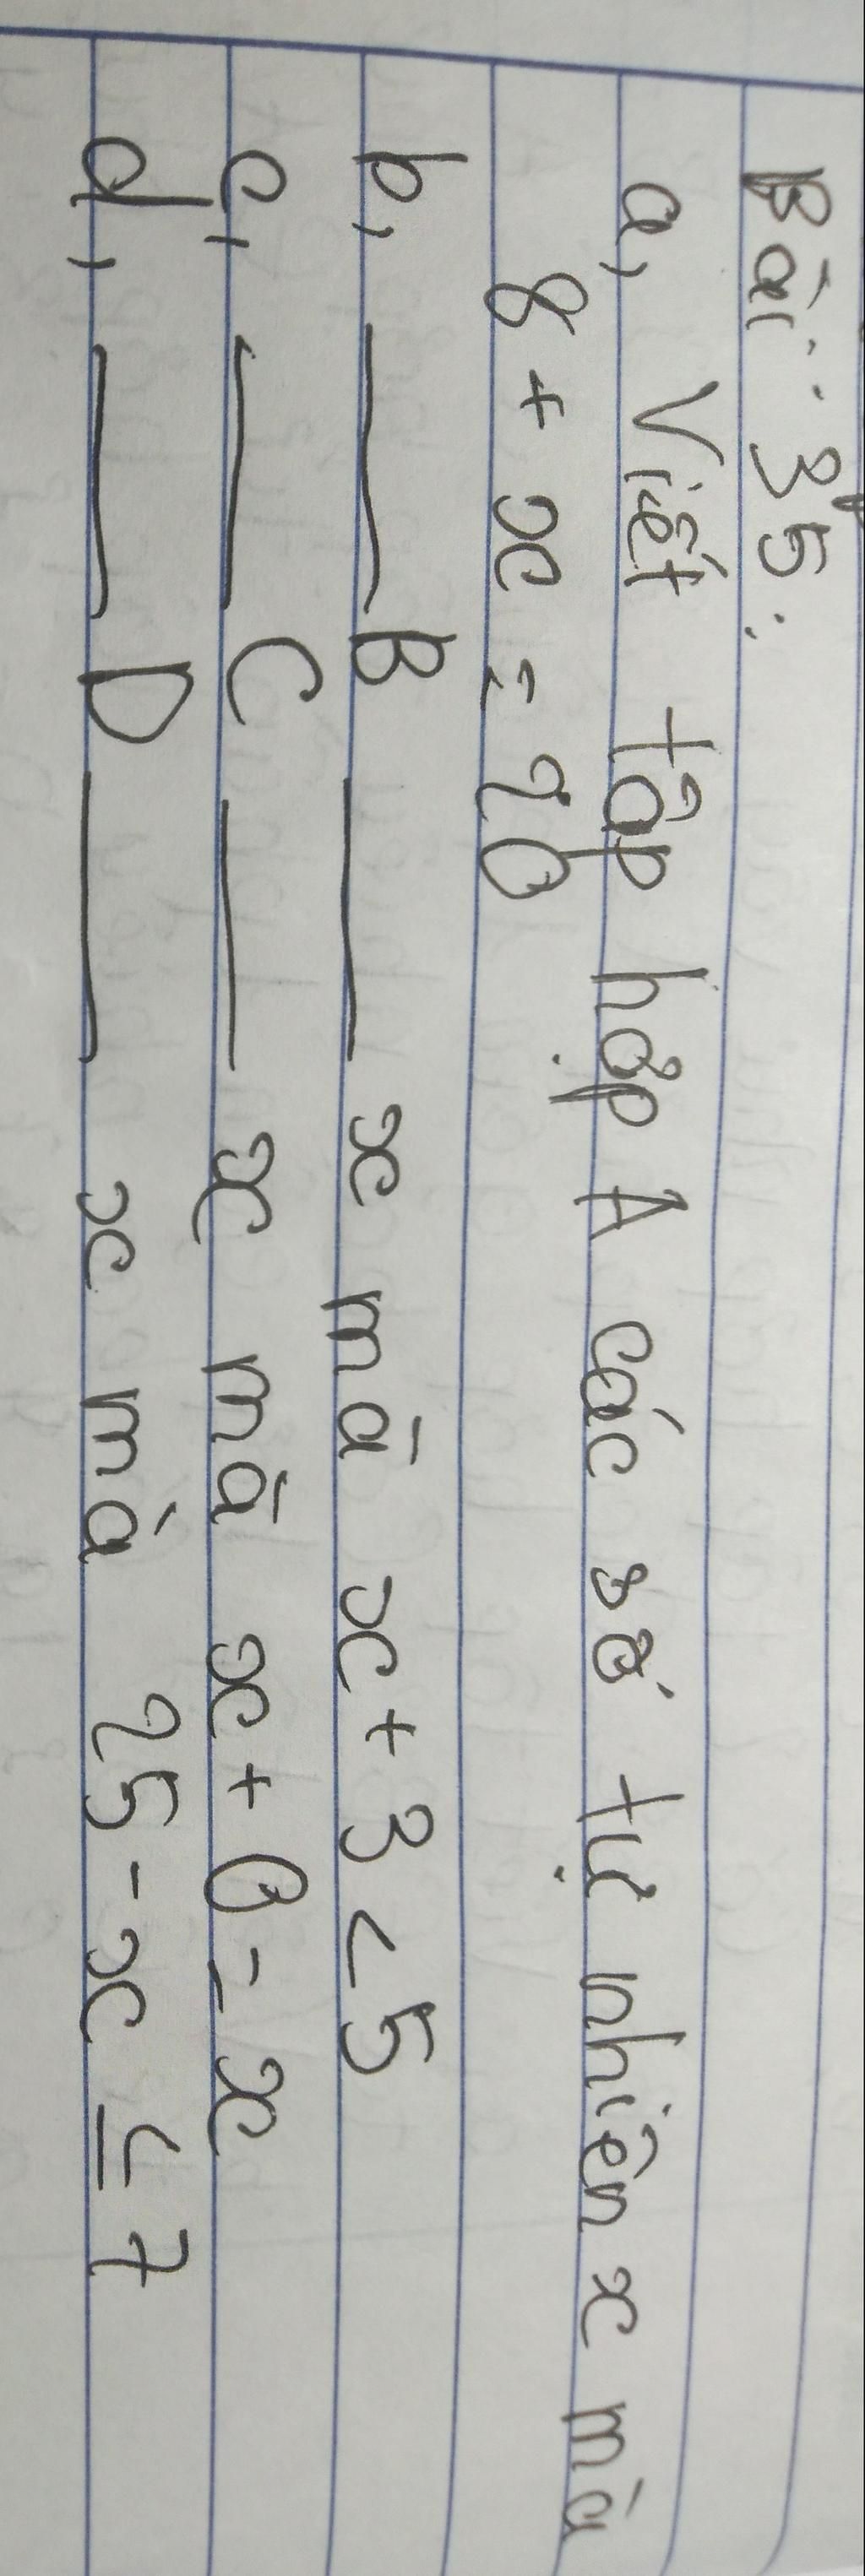 Bài: 35:
a, Viết tập hợp A các số tự nhiên x mà
8 + x = 20
b, —— B —— x mà x + 3 < 5
c, —— C —— x mà x + 0 = x
d, —— D —— x mà 25 - x ≤ 7